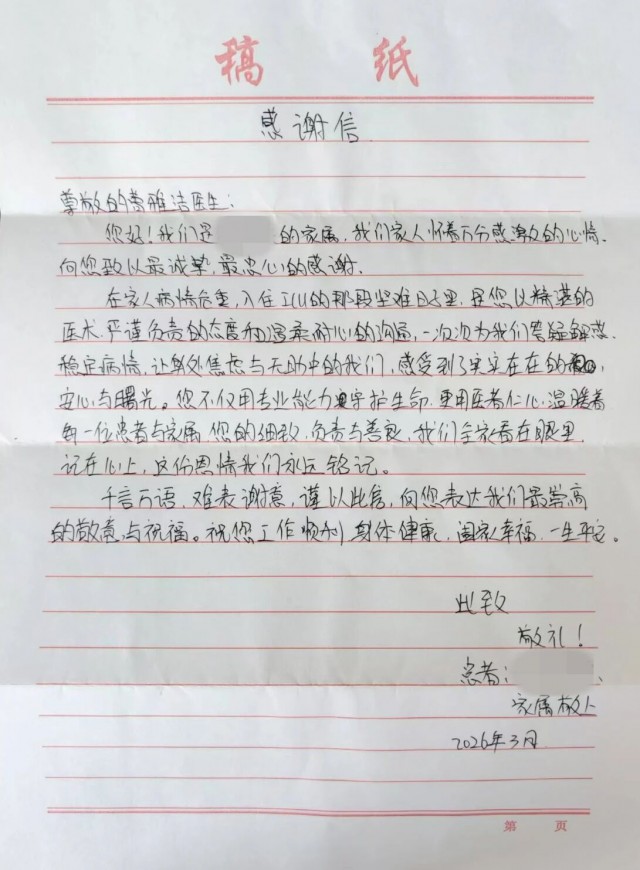 稿 纸
感谢信
尊敬的黄雅洁医生：
您好！我们是 的家属，我们家人怀着万分感激的心情，
向您致以最诚挚、最忠心的感谢。
在家人病情危重，入住ICU的那段艰难日子里，是您以精湛的
医术、严谨负责的态度和温柔耐心的沟通，一次次为我们答疑解惑
稳定病情，让身处焦虑与无助中的我们，感受到了实实在在的
安心与曙光。您不仅用专业能力守护生命，更用医者仁心，温暖着
每一位患者与家属，您的细致、负责与善良，我们全家看在眼里，
记在心上，这份恩情我们永远铭记。
千言万语，难表谢意，谨以此信，向您表达我们最崇高
的敬意与祝福。祝您工作顺利，身体健康，阖家幸福，一生平安。
此致
敬礼！
患者：
家属敬上
2026年3月
第 页